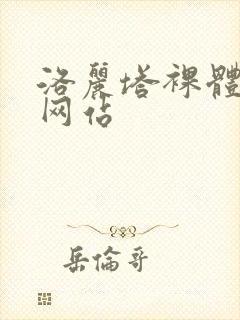 洛麗塔裸體
网站
岳倫哥